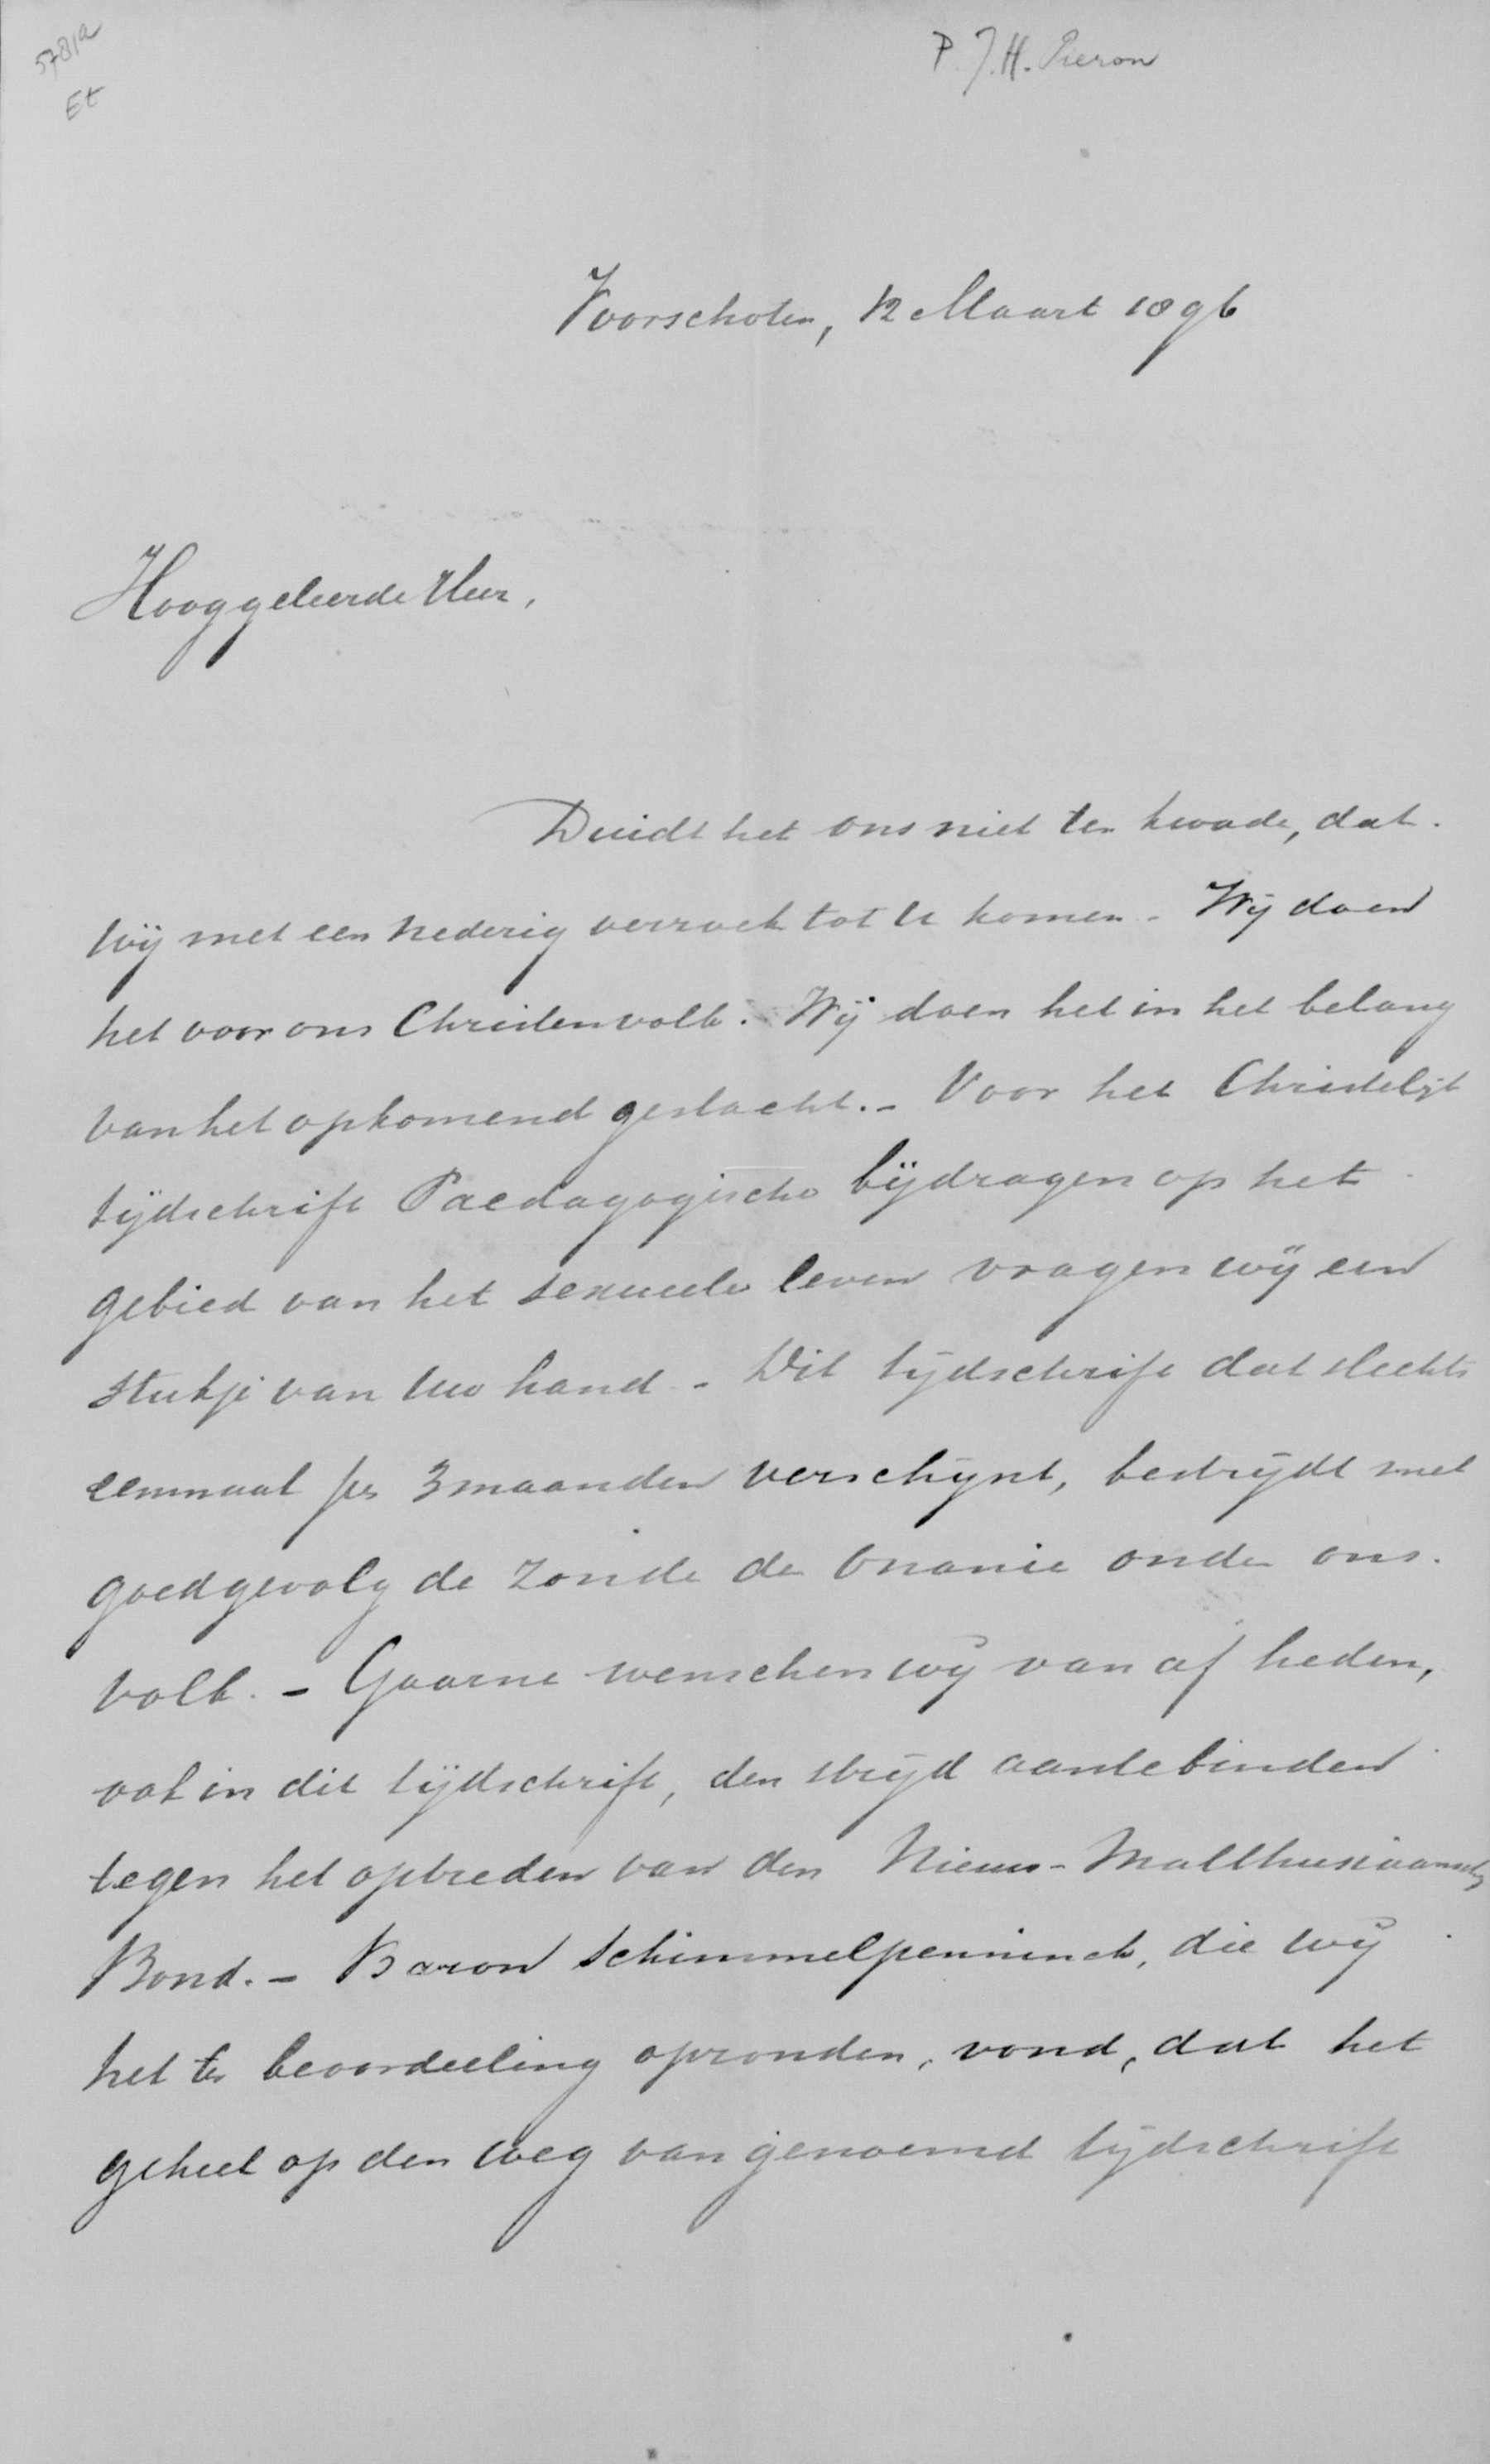 5781a
Et
P. J. H. Pieron
Voorschoten, 12 Maart 1896
Hooggeleerde Heer,
Duidt het ons niet ten kwade, dat
wij met een nederig verzoek tot U komen. - Wij doen
het voor ons Christenvolk. Wij doen het in het belang
van het opkomend geslacht. - Voor het Christelijk
tijdschrift Paedagogische bijdragen op het
gebied van het sexueele leven vragen wij een
stukje van Uw hand. - Dit tijdschrift dat slechts
eenmaal per 3 maanden verschijnt, bestrijdt met
goedgevolg de zonde der Onanie onder ons
volk. - Gaarne wenschen wij van af heden,
ook in dit tijdschrift, den strijd aantebinden
tegen het optreden van den Nieuw-Malthusiaansch
Bond. - Baron Schimmelpenninck, die wij
het ter beoordeeling opzonden, vond, dat het
geheel op den weg van genoemd tijdschrift